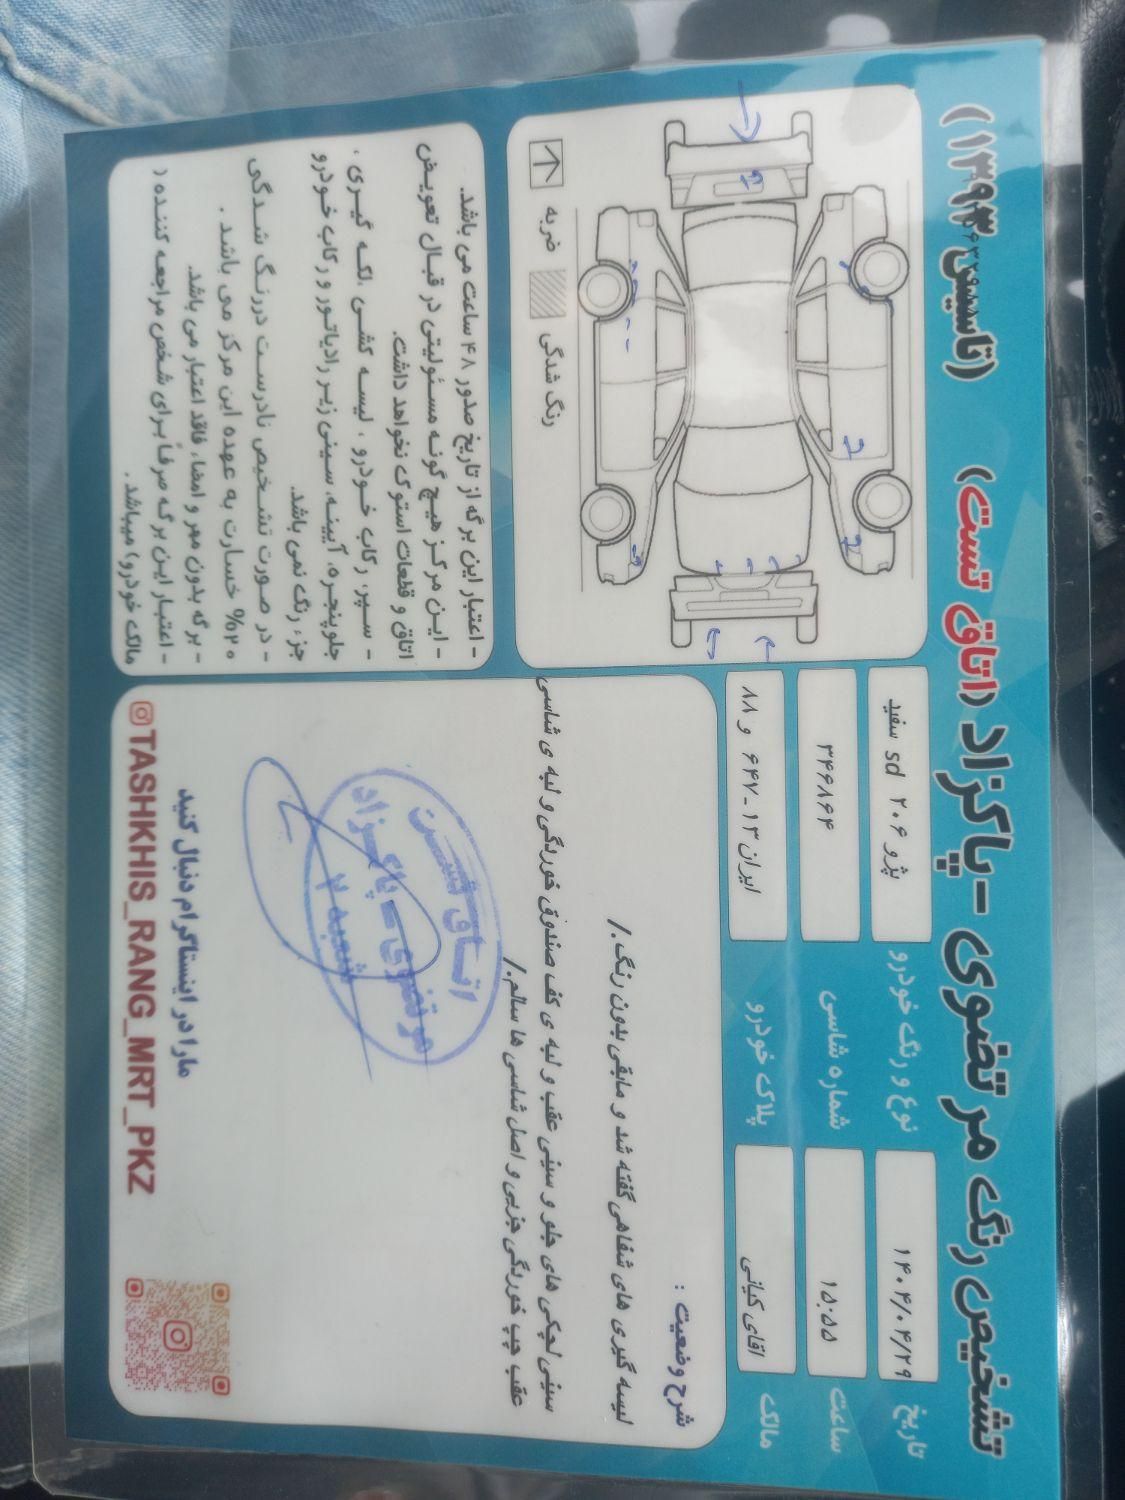 تشخیص رنگ مرتضوی - پاکزاد (اتاق تست) (تاسیس ۱۳۹۳)
تاریخ ۱۴۰۴/۰۴/۲۹
نوع و رنگ خودرو پژو ۲۰۶ sd سفید
ساعت ۱۵:۵۵
شماره شاسی ۳۴۶۸۶۴
مالک اقای کیانی
پلاک خودرو ایران ۱۳-۶۴۷ و ۸۸
ضربه
رنگ شدگی
شرح وضعیت :
لیسه گیری های شفاهی گفته شد و مابقی بدون رنگ./
سینی لچکی های جلو و سینی عقب و لبه ی کف صندوق خوردگی و لبه ی شاسی
عقب چپ خوردگی جزیی و اصل شاسی ها سالم./
اتاق تست
مرتضوی - پاکزاد
شعبه ۲
- اعتبار این برگه از تاریخ صدور ۴۸ ساعت می باشد.
- این مرکز هیچ گونه مسئولیتی در قبال تعویض
اتاق و قطعات استوک نخواهد داشت.
- سپر، رکاب خودرو ، لیسه کشی ،لکه گیری ،
جلوپنجره، آیینه، سینی زیر رادیاتور و رکاب خودرو
جزء رنگ نمی باشد.
- در صورت تشخیص نادرست دررنگ شدگی
۲۰% خسارت به عهده این مرکز می باشد .
- برگه بدون مهر و امضاء فاقد اعتبار می باشد.
- اعتبار این برگه صرفاً برای شخص مراجعه کننده (
مالک خودرو) میباشد.
ما را در اینستاگرام دنبال کنید
TASHKHIS_RANG_MRT_PKZ